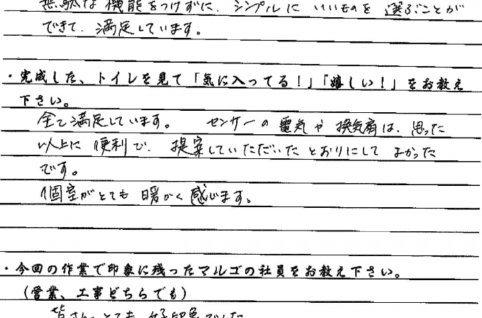 無駄な機能をつけずに、シンプルに いいものを 選ぶことが
できて、満足しています。
・完成した、トイレを見て「気に入ってる！」「嬉しい！」をお教え
下さい。
全て満足しています。 センサーの電気や換気扇は、思った
以上に便利で、提案していただいたとおりにしてよかった
です。
個室がとても暖かく感じます。
・今回の作業で印象に残ったマルゴの社員をお教え下さい。
（営業、工事どちらでも）
皆さん、とても 好印象でした